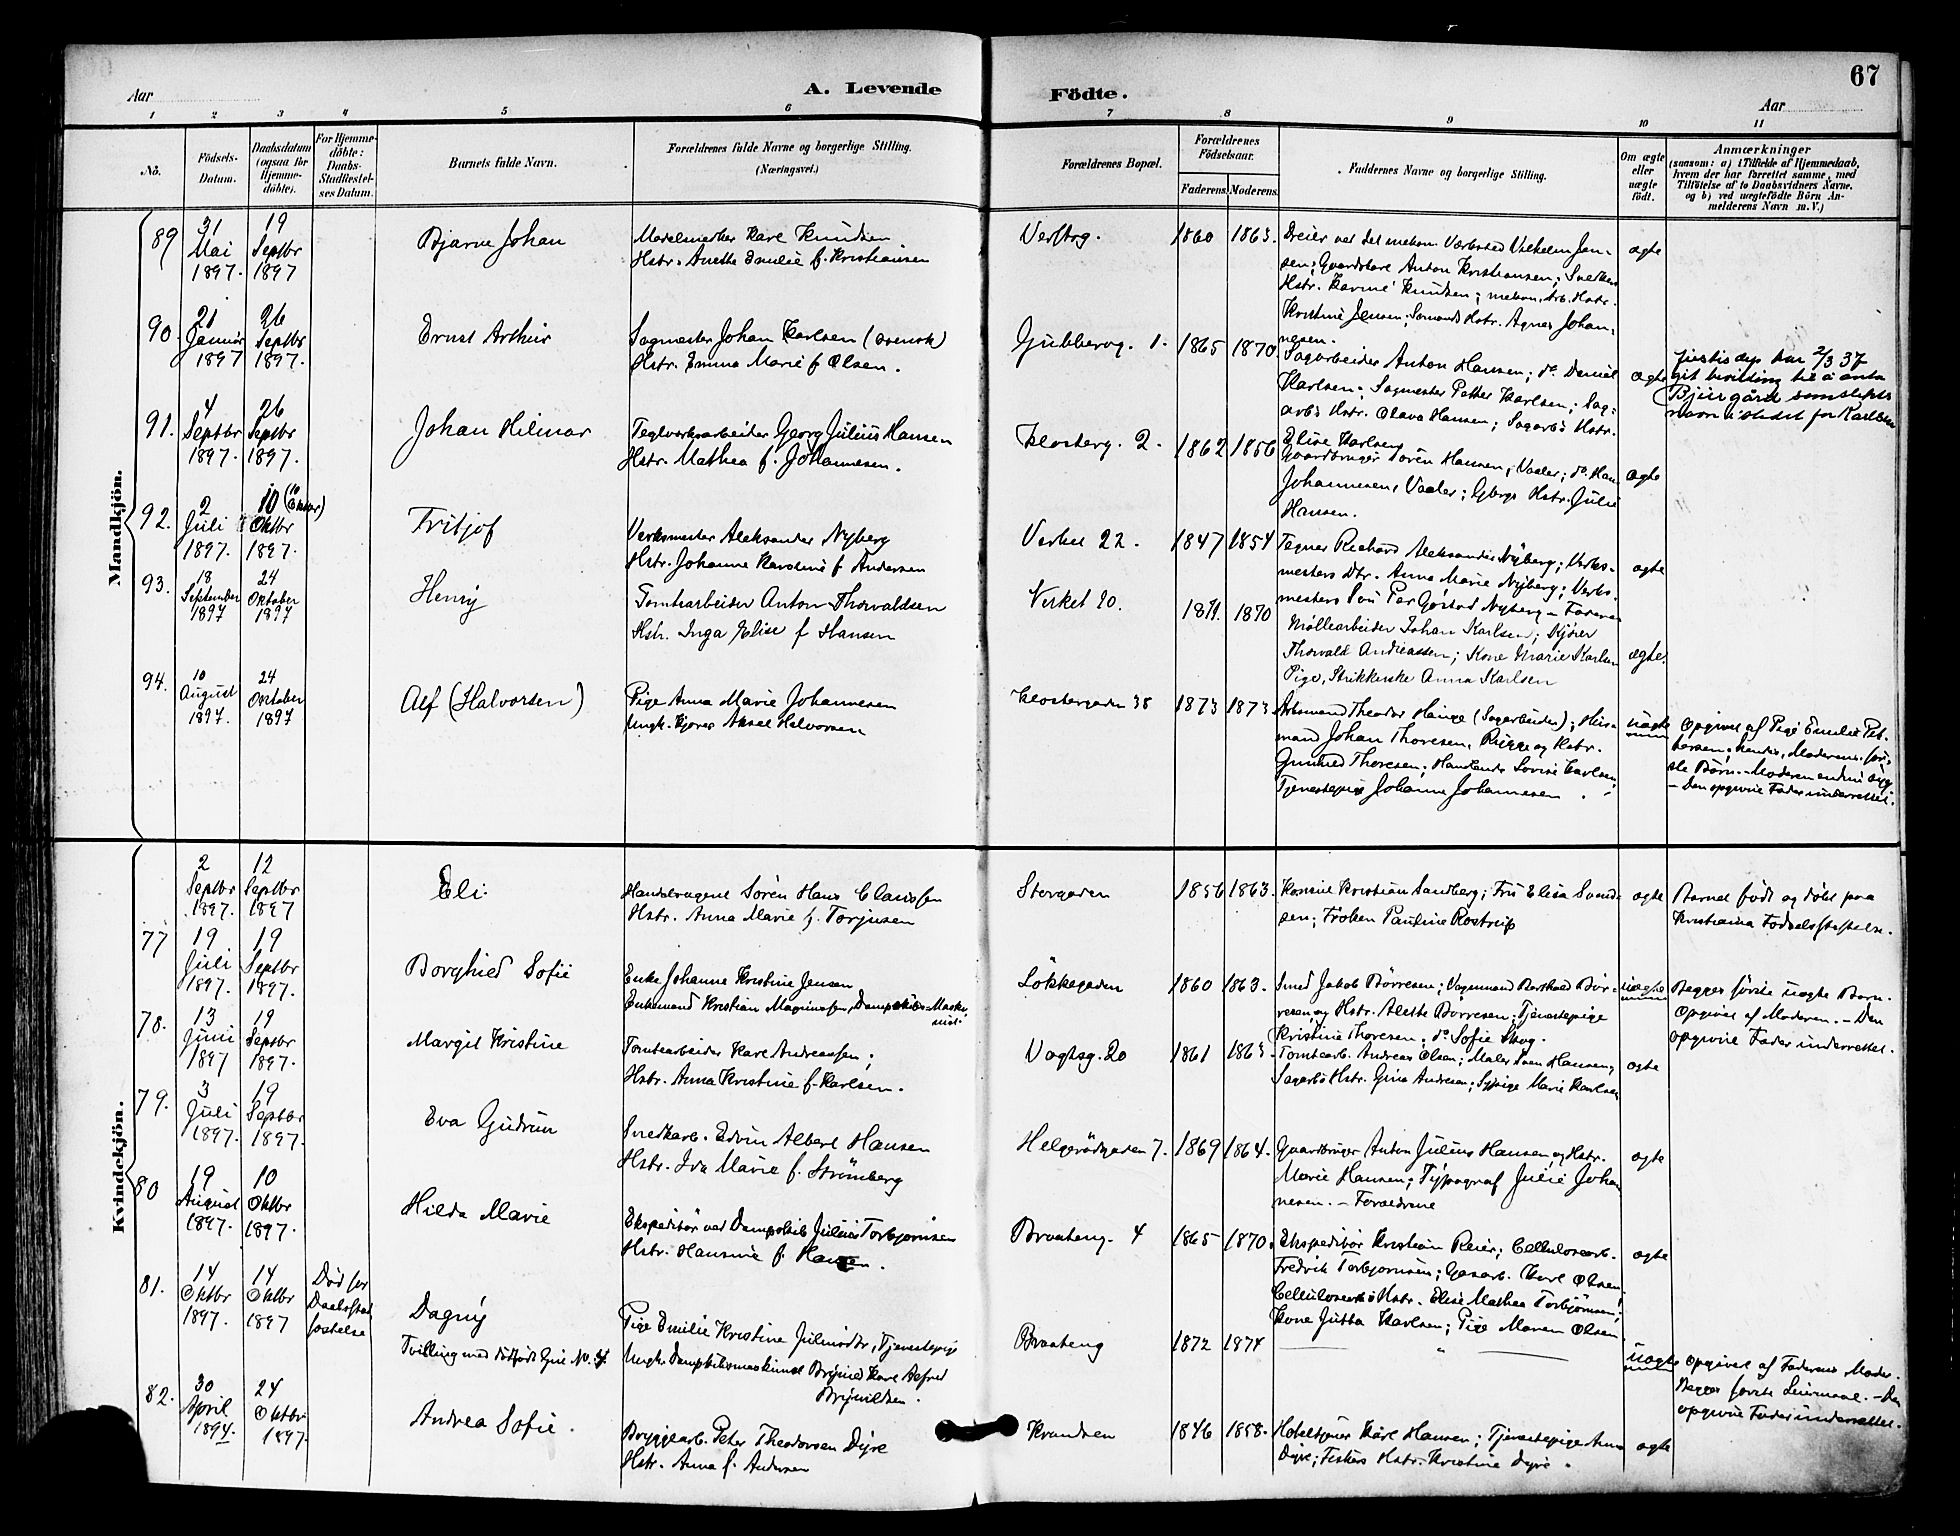 67
A. Levende Födte.
Aar
Aar
1 2 3 4 5 6 7 8 9 10 11
No.
Födsels-Datum.
Daabsdatum (ogsaa for Hjemmedöbte).
For Hjemmedöbte: Daabs-Stadfæstelses Datum.
Barnets fulde Navn.
Forældrenes fulde Navne og borgerlige Stilling.
(Næringsvei.)
Forældrenes Bopæl.
Forældrenes Födselsaar.
Faderens. Moderens.
Faddernes Navne og borgerlige Stilling.
Om ægte eller uægte født.
Anmærkninger
(saasom: a) i Tilfælde af Hjemmedaab, hvem der har forrettet samme, med Tilföielse af to Daabsvidners Navne. og b) ved uægtefödte Börn Anmelderens Navn m. V.)
Mandkjön.
89 31 Mai 1897. 19 Septbr 1897
Bjarne Johan
Karl Knudsen
Hstr. Anette Emilie f. Kristiansen
1860 1863.
Dreier ved det mekan. Værksted Vilhelm Jensen; Gaardbrer Anton Kristiansen; Snedkers
Hstr. Karine Knudsen; mekan. Arb. Hstr.
Kristine Jensen; Sömands Hstr. Agnes Johannesen.
ægte
90. 21 Januar 1897 26 Septbr 1897.
Ernst Arthur
Sagmester Johan Karlsen (svensk)
Hstr. Emma Marie f. Olsen.
Gubberog. 1. 1865 1870
Sagarbeider Anton Hansen; do. Daniel
Karlsen; Sagmester Petter Karlsen; Sagarbs Hstr. Olava Hansen; Sagarbs Hstr.
Elise Karlsen
ægte
Justisdep har 2/3 37
git bevilling til å anta
Bjergård som slegts
navn istedet for Karlsen
91. 4 Septbr 1897. 26 Septbr 1897.
Johan Hilmar
Teglverksarbeider Georg Julius Hansen
Hstr. Mathea f. Johannesen.
Klosterg. 2. 1862 1856
Gaardbruger Sören Hansen, Vaaler; do. Hans
Johannesen, Vaaler; Gbrgs Hstr. Julie
Hansen.
ægte
92. 2 Juli 1897. 10 Oktbr 1897.
Fritjof
Verksmester Aleksander Nyberg
Hstr. Johanne Karoline f. Andersen
Verket 22. 1847 1854
Tegner Richard Aleksander Nyberg; Verksmesters Dtr. Anna Marie Nyberg; Verksmesters Sön Per Göstad Nyberg – Faderen
ægte
93. 18 September 1897 24 Oktober 1897
Henry
Tomtearbeider Anton Thorvaldsen
Hstr. Inga Elise f Hansen
Verket 20. 1871. 1870
Møllearbeider Johan Karlsen; Kjører
Thorvald Andreassen; Kone Marie Karlsen
Pige, Strikkerske Anna Karlsen
ægte.
94. 10 August 1897. 24 Oktober 1897
Alf (Halvorsen)
Pige Anna Marie Johannesen
Ungk. Kjører Aksel Halvorsen
Klostergaden 38 1873 1873.
Arbsmand Theodor Hauge (Sagarbeider); Husmand Johan Thoresen, Rygge og Hstr.
Gunhild Thoresen; Handlende Lovise Karlsen;
Tjenestepige Johanne Johannesen.
uægte
Opgivet af Pige Emilie Pettersen; hendes, Moderens förste Børn. – Moderen endnu syg.
– Den opgivne Fader underrettet.
Kvindekjön.
77 2 Septbr 1897. 12 Septbr 1897
Eli
Handelsagent Sören Hans Clausen
Hstr. Anna Marie f. Torjusen
Storgaden 1856 1863.
Konsul Kristian Sandberg; Fru Elisa Svendsen; Fröken Pauline Rostrup
ægte
Barnet født og døbt paa
Kristiania Fødselsstiftelse.
78. 19 Juli 1897. 19 Septbr 1897.
Borghild Sofie
Enke Johanne Kristine Jensen
Enkemand Kristian Magnussen, Dampskibs-Maskinist
Løkkegaden 1860 1863.
Smed Jakob Børresen; Vognmand Børresen, og Hstr. Alette Børresen; Tjenestepige
Kristine Thoresen; do. Sofie Skog.
uægte
Begges første uægte Barn.
Opgivet af Moderen. – Den
opgivne Fader underrettet.
79. 13 Juni 1897 19 Septbr 1897.
Margit Kristine
Tomtearbeider Karl Andreassen;
Hstr. Anna Kristine f. Karlsen.
Vogtsg. 20 1861 1863.
Tomtearb. Andreas Olsen; Maler Sven Hansen;
Sagarbs Hstr. Gina Andresen; Sypige Marie Karlsen
ægte
80 3 Juli 1897. 19 Septbr 1897.
Eva Gudrun
Snedkarb. Edvin Albert Hansen
Hstr. Ida Marie f. Strömberg
Helgerödgaden 7. 1869 1864.
Gaardbruger Anton Julius Hansen og Hstr.
Marie Hansen; Typograf Julie Johannesen. – Forældrene
ægte
81. 19 August 1897. 10 Oktbr 1897.
Hilda Marie
Ekspeditör ved Dampskib Julius Torbjørnsen
Hstr. Hansine f. Hansen.
Braateng. 4 1865 1870.
Ekspeditör Kristian Reier; Cellulosearb.
Fredrik Torbjørnsen; Gasarb. Karl Olsen
Cellulosearbs Hstr. Elise Mathea Torbjørnsen;
Kone Jutta Karlsen; Pige Maren Olsen
ægte
14 Oktbr 1897. 14 Oktbr 1897
Død før Daabsstadfæstelse
Dagny
Tvilling med dødfødt Gut No. 4
Pige Emilie Kristine, Tjenestepige
Ungk. Dampskibsmaskinist Karl Alfred
Brynildsen.
Braateng 1872 1874
uægte
Opgivet af Faderens Moder.
Begges første Leiermaal. – Den
opgivne Fader underrettet.
82. 30 April 1894. 24 Oktbr. 1897.
Andrea Sofie.
Bryggearb. Peter Theodorsen Dyre
Hstr. Anna f. Andersen
Krandsen 1846 1858.
Hotelstjener Karl Hansen; Tjenestepige Anna
Dyre; Fiskers Hstr. Kristine Dyre.
ægte